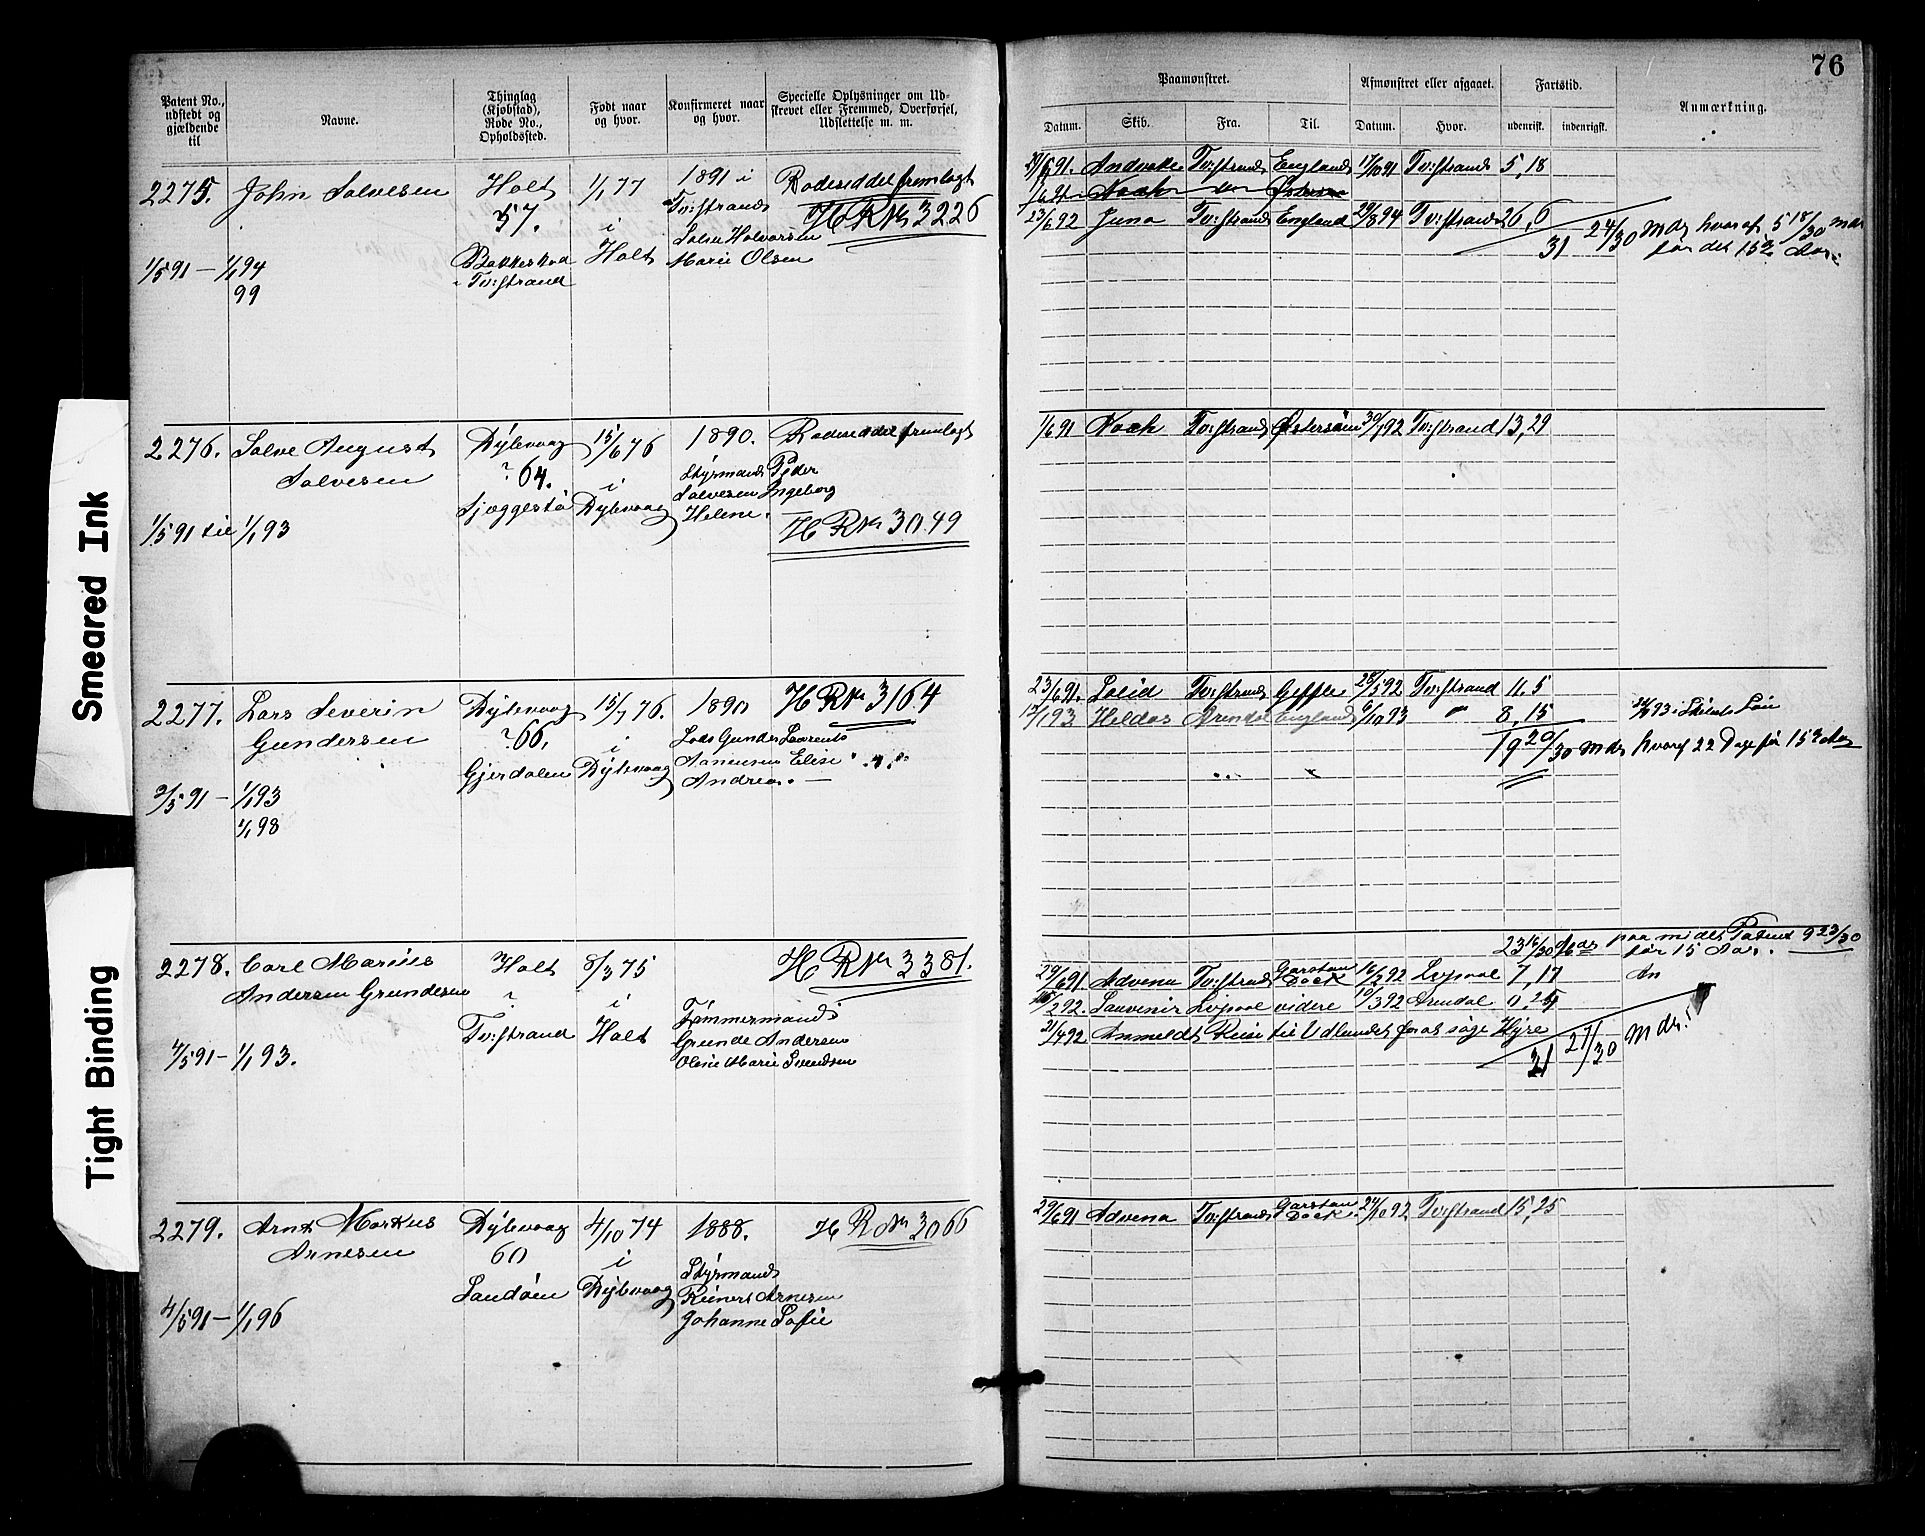 76
Patent No., udstedt og gjældende til
Navne.
Thinglag (Kjøbstad), Rode No., Opholdssted.
Født naar og hvor.
Konfirmeret naar og hvor.
Specielle Oplysninger om Udskrevet eller Fremmed, Overførsel, Udslettelse m. m.
Paamønstret.
Afmønstret eller afgaaet.
Fartstid.
Anmærkning.
Datum. Skib. Fra. Til. Datum. Hvor. udenrigsk. indenrigsk.
2275. John Salvesen Holt 1/1 77 1891 i Rodeseddel fremlagt
57. i Tv:strand H R No 3226
Holt Marie Olsen
Tv:strand
1/5 91 – 1/1 94
99
Tv:strand England 17/10 91 Tv:strand 5,18
1/6 91 Noack Østersøen
23/6 92 Juno Tv:strand England 29/8 94 Tv:strand 26,6
31 24/30 Mdr hvoraf 5 18/30 mdr
før det 15de Aar
2276. Salve August Dybvaag 15/6 76 1890. Rodeseddel fremlagt
Salvesen 64. i Styrmand Peder
Dybvaag Salvesen Ingeborg
Helene.
1/5 91 til 1/1 93 H R No 3049
1/6 91 Noack Tv:strand Østersøen 30/1 92 Tv:strand 13,29
2277. Lars Severin Dybvaag 15/7 76. 1890 H R No 3164
Gundersen 66. i Lods Gunder Laurents
Gjerdalen Dybvaag Aanensen Elise
Andrea.
2/5 91 – 1/1 93
1/1 98
23/6 91. Solid Tv:strand Geffle 28/5 92 Tv:strand 11,5
Arendal England 6/10 93 " 8,15
19 20/30 Mdr hvoraf 22 Dage før 15de Aar
2278. Carl Marius Holt 8/3 75 H R No 3381.
Andersen Grundesen i
Tv:strand Holt Tømmermand
Grunde Andersen
Olene Marie Svendsen
4/5 91 – 1/1 93.
23 16/30 Mdr paa midl. Patent 9 23/30
før 15 Aar.
29/6 91. Advena Tv:strand Garston Dock 16/2 92 Lvpool 7,17
Souvenir Lvpool videre 10/3 92 Arendal 0,24
21/4 92 Anmeldt Reise til Udlandet for at søge Hyre
31 27/30 Mdr.
2279. Arnt Markus Dybvaag 4/10 74 1888. H R No 3066
Arnesen 60 i Styrmand
Sandøen Dybvaag Reinert Arnesen
Johanne Sofie
4/5 91 – 1/1 96
29/6 91 Advena Tv:strand Garston Dock. 24/10 92 Tv:strand 15,25
Smeared Ink
Tight Binding